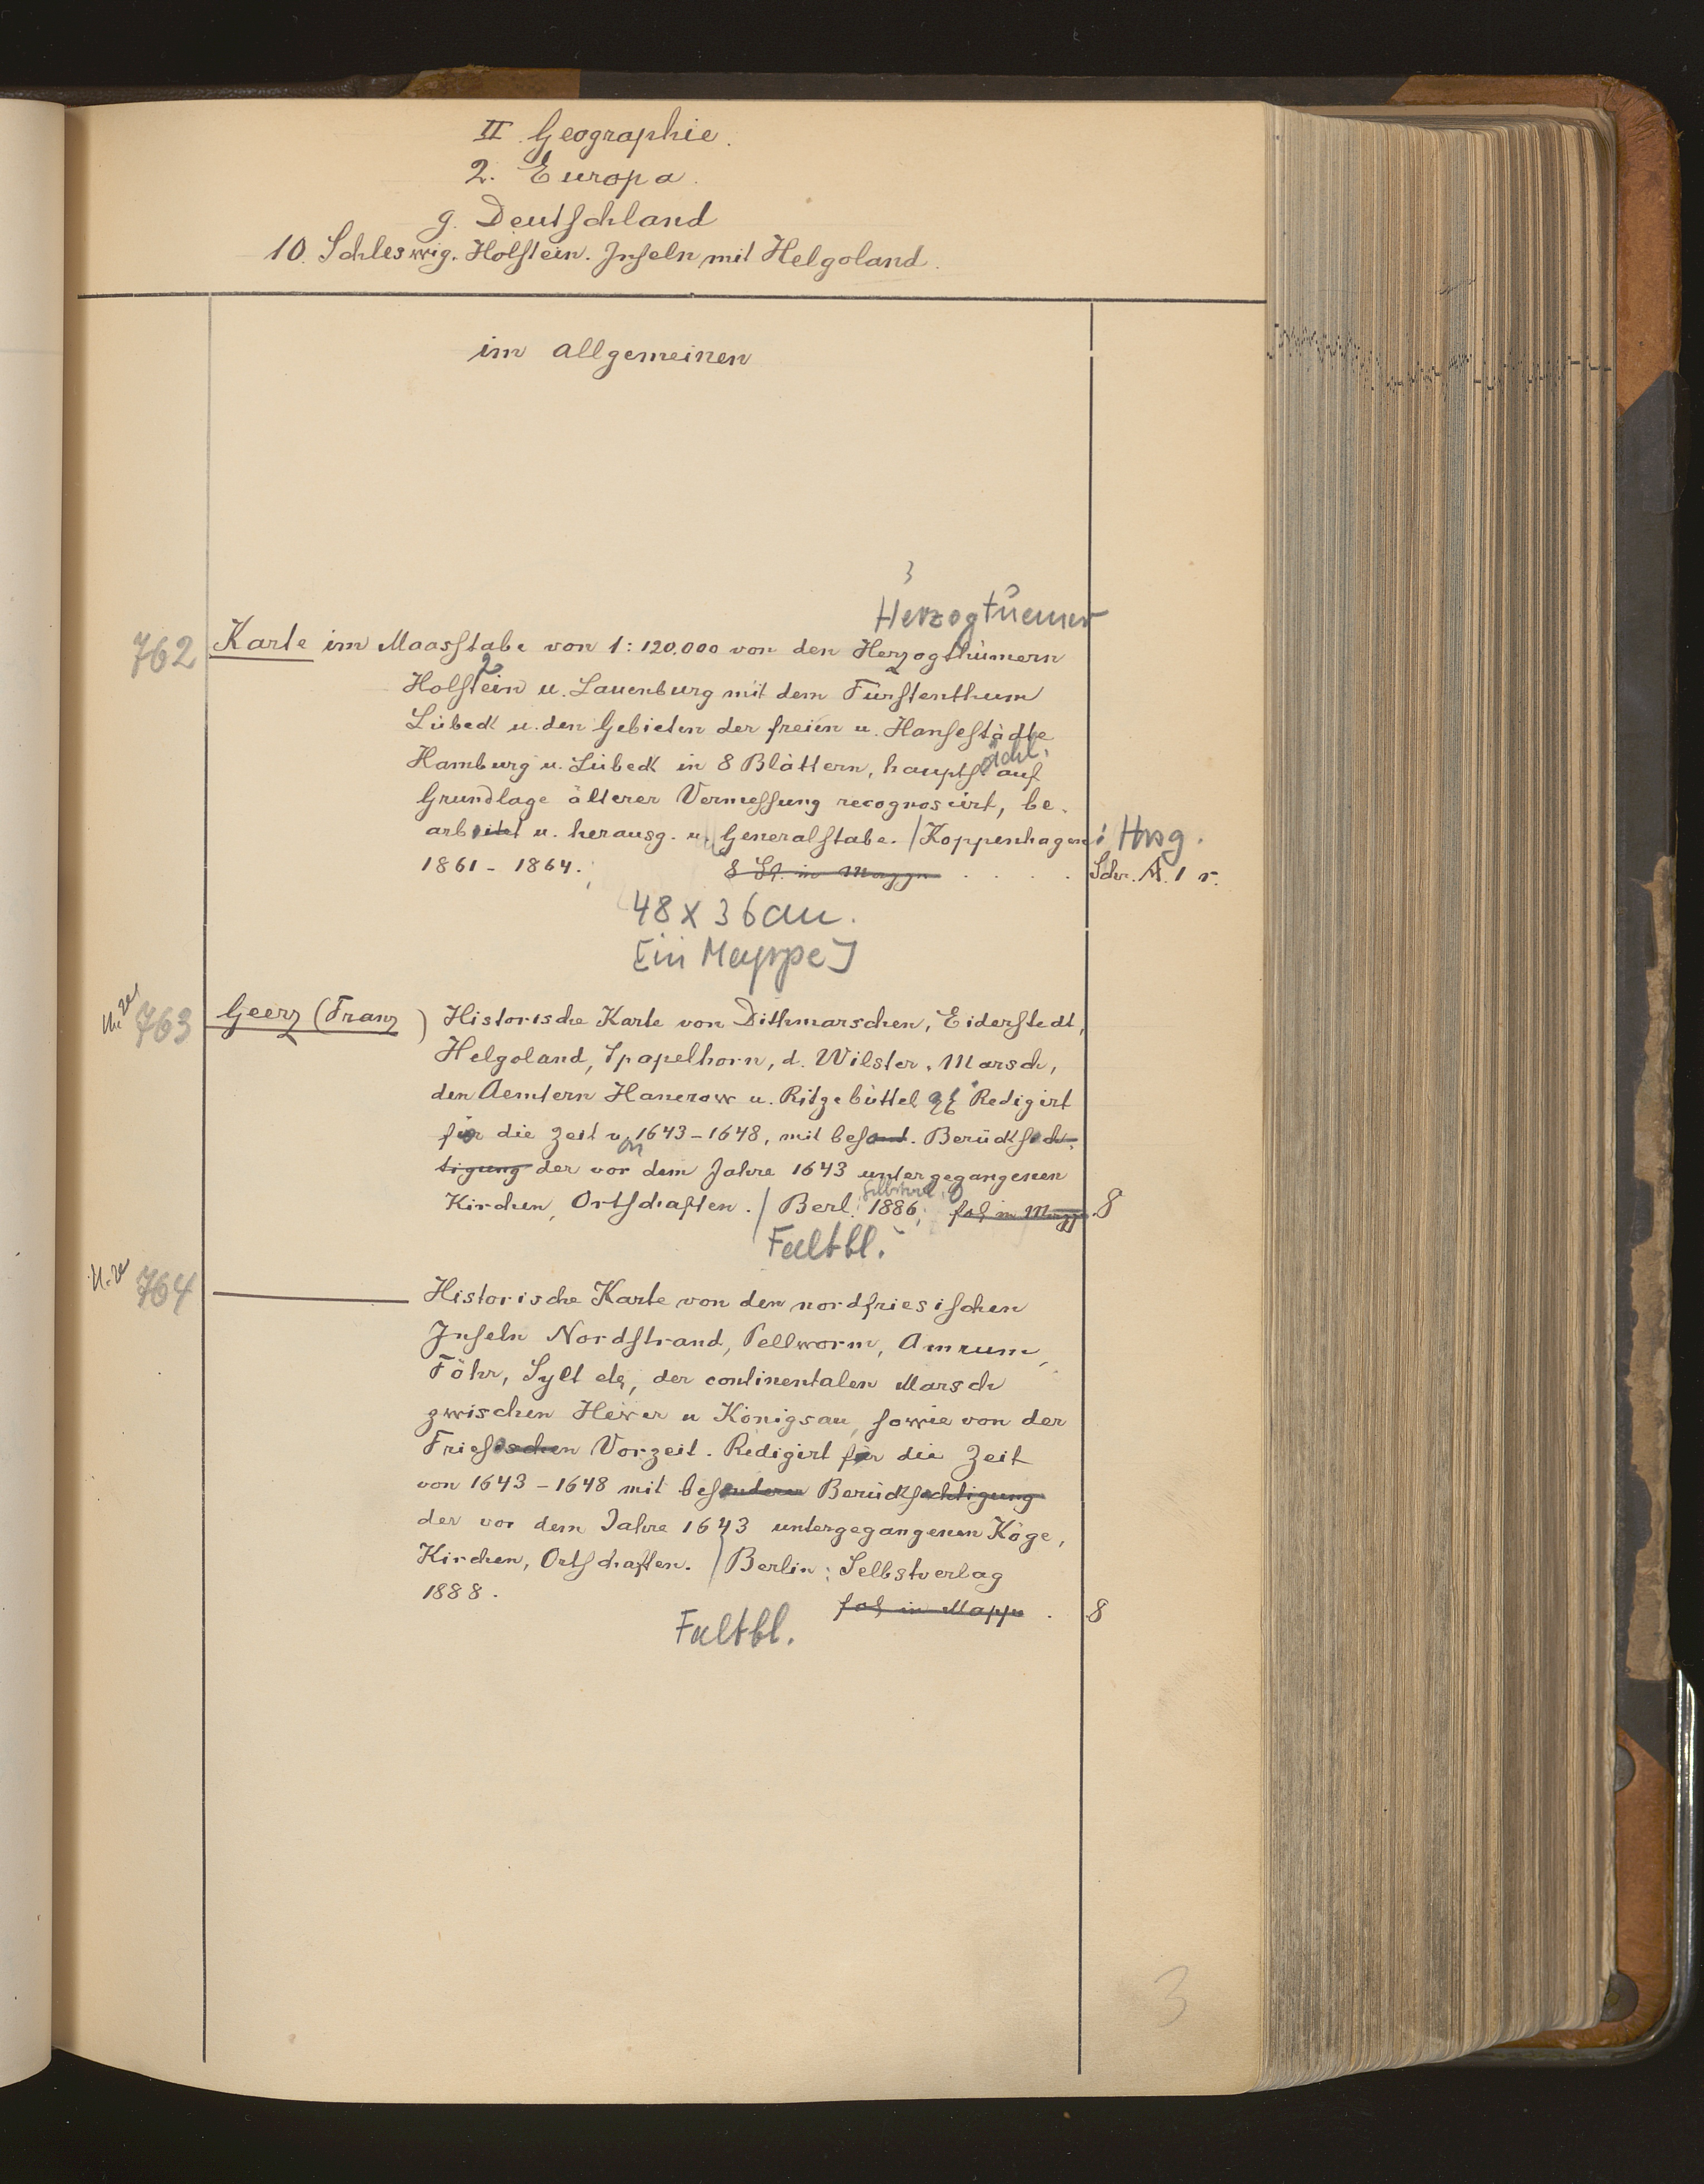 II. Geographie.
2. Europa.
g. Deutschland
10. Schleswig. Holstein. Inseln mit Helgoland.
im allgemeinen
3
Herzogtuemer
762 Karte im Maasstabe von 1:120.000 von den Herzogthümern
2
Holstein u. Lauenburg mit dem Fürstenthum
Lübeck u. den Gebieten der freien u. Hansestädte
Hamburg u. Lübeck in 8 Blättern, haupts ächl. auf
Grundlage älterer Vermessung recognoscirt, be-
arbeitet u. herausg. v. Generalstabe. / Koppenhagen: Hrsg.
1861-1864. 8 Bl. in Mappe . . . . Schr. A. 1 r.
48 x 36 cm.
[in Mappe]
763 Geerz (Franz) Historische Karte von Dithmarschen, Eiderstedt,
Helgoland, Spapelhorn, d. Wilster. Marsch,
den Aemtern Hanerow u. Ritzebüttel Redigirt
für die Zeit von 1643-1648, mit besond. Berücksich-
tigung der vor dem Jahre 1643 untergegangenen
Kirchen, Ortschaften. / Berl. 1886; fol in Mappe. 8
Faltbl.
764 ——— Historische Karte von den nordfriesischen
Inseln Nordstrand, Pellworm, Amrum,
Föhr, Sylt etc, der continentalen Marsch
zwischen Hever u Königsau, sowie von der
Friesischen Vorzeit. Redigirt für die Zeit
von 1643-1648 mit besonderer Berücksichtigung
der vor dem Jahre 1643 untergegangenen Köge,
Kirchen, Ortschaften. / Berlin: Selbstverlag
1888. fol in Mappe . 8
Faltbl.
3